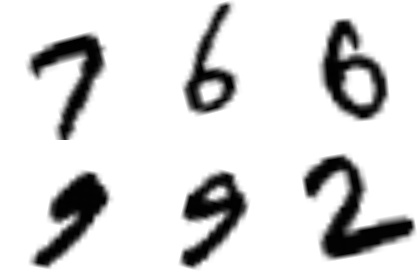 7 6 6
9 9 2